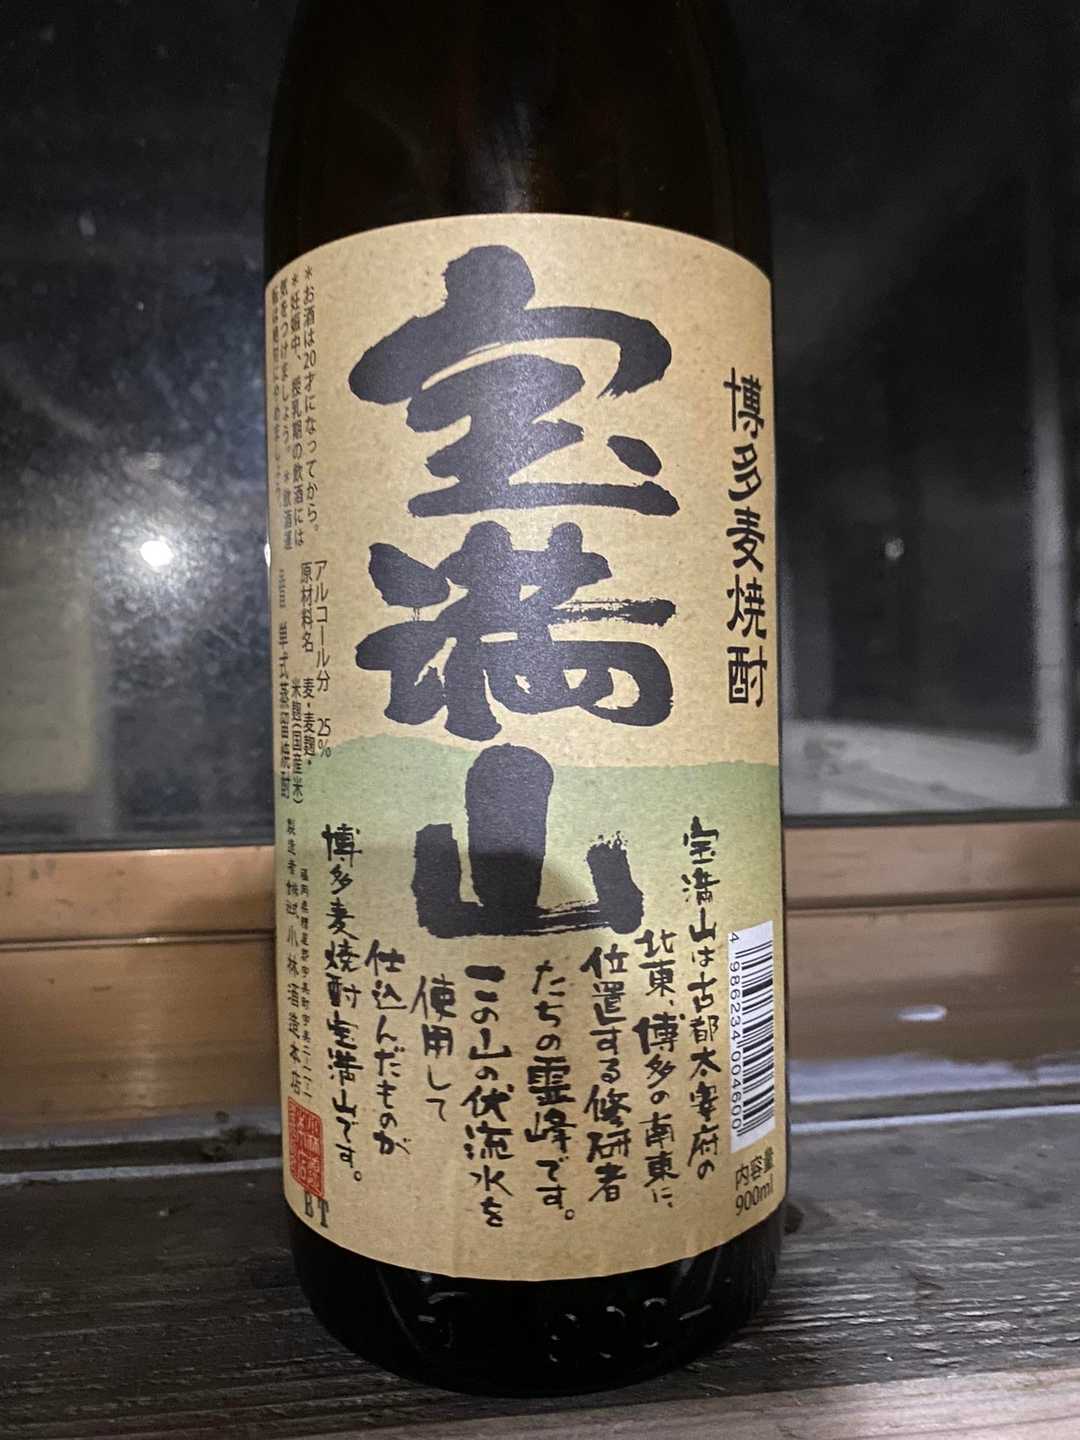 博多麦焼酎
宝満山
宝満山は古都太宰府の
北東、博多の南東に、
位置する修研者
たちの霊峰です。
この山の伏流水を
使用して
仕込んだものが
博多麦焼酎宝満山です。
4 986234 004600
内容量
900ml
アルコール分 25%
原材料名 麦・麦麹・
米麹(国産米)
単式蒸留焼酎
製造者 株式会社 小林酒造本店
福岡県糟屋郡宇美町宇美
*お酒は20才になってから。
*妊娠中、授乳期の飲酒には
気をつけましょう。*飲酒運
転は絶対にやめましょう。
BT